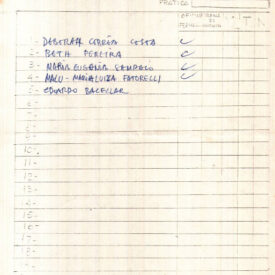 PRÁTICA:
1- DEBORAH CORRÊA COSTA
2- BETH PEREIRA
3- MARIA EUGENIA SAMPAIO
4- MALU - MARIA LUIZA FATORELLI
5- EDUARDO BACELLAR
6-
7-
8-
9-
10-
11-
12-
13-
14-
15-
16-
17-
18-